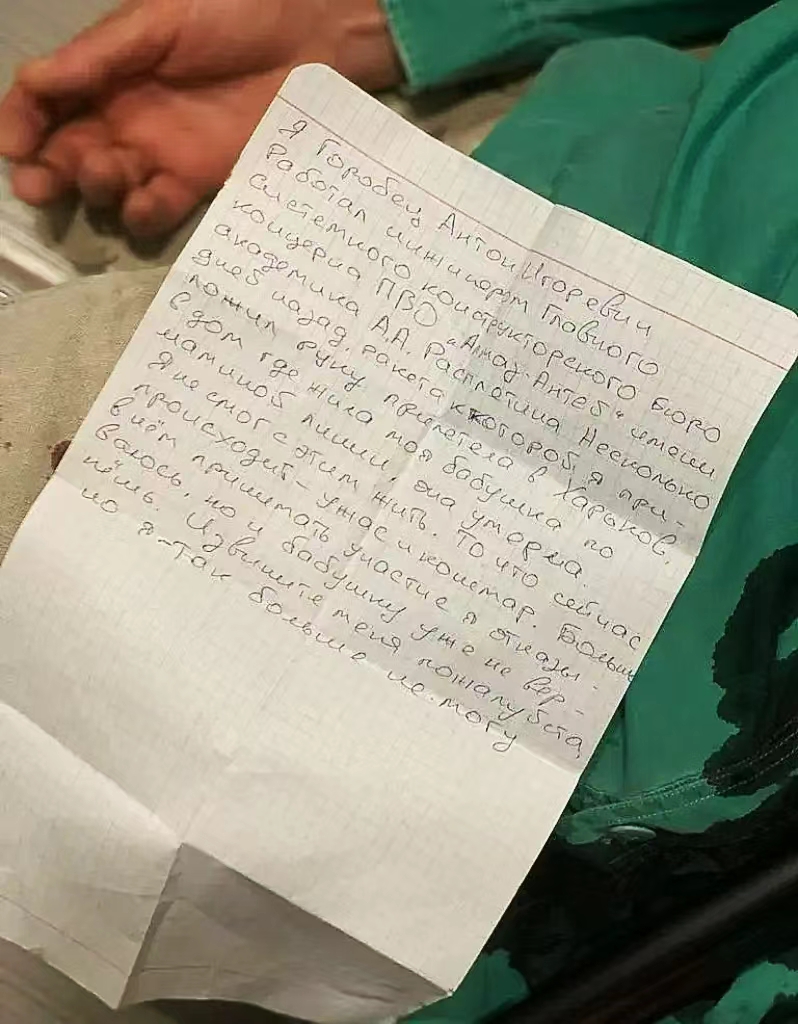 Я Горобец Антон Игоревич
Работал инжинером Главного
системного конструкторского бюро
концерна ПВО "Алмаз-Антей" имени
академика А.А. Расплетина Несколько
дней назад, ракета к которой я при-
ложил руку прилетела в Харьков,
в дом где жила моя бабушка по
маминой линии, она умерла.
Я не смог с этим жить. То что сейчас
происходит - ужас и кошмар. Больше
в нём принимать участие я отказы-
ваюсь, но и бабушку уже не вер-
нёшь. Извините меня пожалуйста,
но я так больше не могу